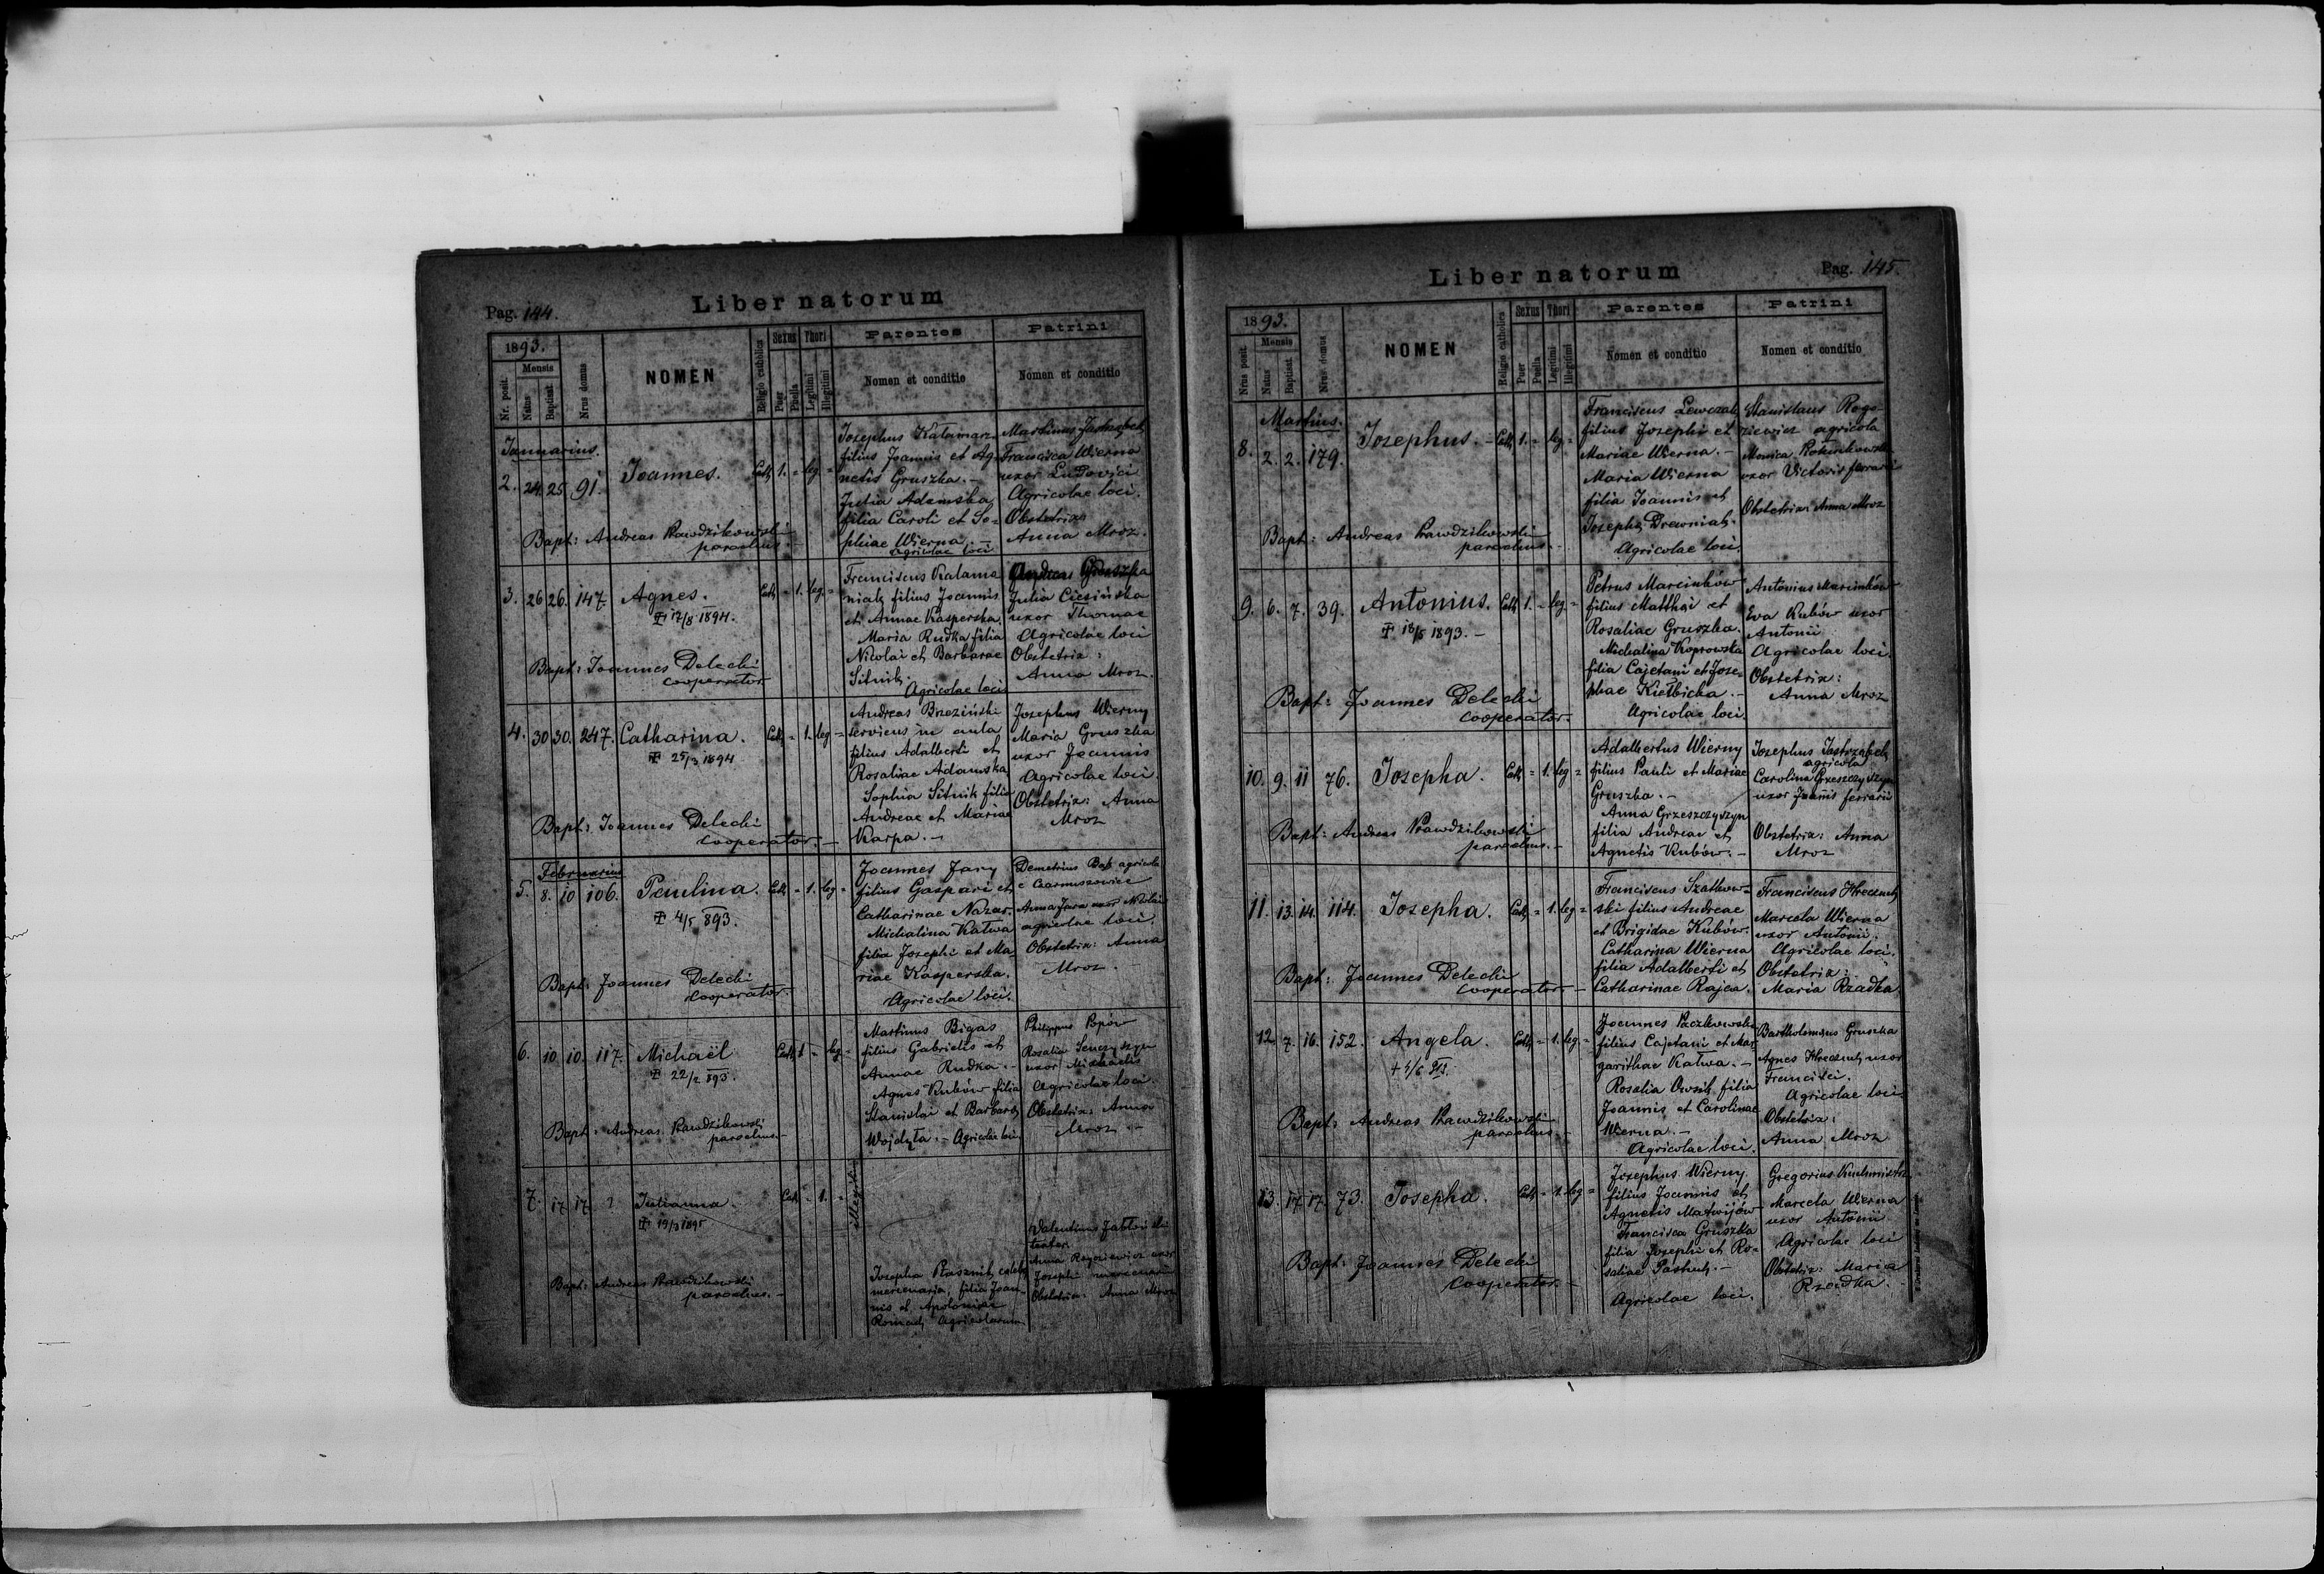 Pag. 144.
Liber natorum
1893.
Nr. posit.
Mensis
Natus
Baptisat.
Nrus domus
NOMEN
Religio catholica
Sexus
Puer
Puella
Thori
Legitimi
Illegitimi
Parentes
Nomen et conditio
Patrini
Nomen et conditio
Januarius.
2. 24. 25. 91. Joannes. Cath. 1. = leg. =
Bapt: Andreas Prawdzikowski
parochus. -
Josephus Katamarz
filius Joannis et Ag-
netis Gruszka. -
Julia Adamska
filia Caroli et So-
phiae Wierna. -
Agricolae loci
Martinus Jastrzębek
Francisca Wierna
uxor Ludovici
Agricolae loci.
Obstetrix
Anna Mroz.
3. 26 26. 147. Agnes. Cath. = 1. leg. =
17/8 1894.
Bapt: Joannes Delecki
cooperator
Franciscus Katama
niak filius Joannis
et Annae Kasperska.
Maria Rudka filia
Nicolai et Barbarae
Sitnik.
Agricolae loci
Andreas Gruszka
Julia Ciesińska
uxor Thomae
Agricolae loci
Obstetrix:
Anna Mroz.
4. 30 30. 247. Catharina. Cath. = 1. leg =
25/3 1894
Bapt: Joannes Delecki
cooperator. -
Andreas Brzeziński
serviens in aula
filius Adalberti et
Rosaliae Adamska
Sophia Sitnik filia
Andreae et Mariae
Karpa. -
Josephus Wierny
Maria Gruszka
uxor Joannis
Agricolae loci.
Obstetrix: Anna
Mroz
Februarius
5. 8. 10 106. Paulina. Cath. = 1. leg =
4/5 893.
Bapt: Joannes Delecki
cooperator.
Joannes Jary
filius Gaspari et
Catharinae Nazar.
Michalina Katwa
filia Josephi et Ma
riae Kasperska.
Agricolae loci.
Demetrius Bab agricola
e Czarnuszowice
Anna Jara uxor Nicolai
agricolae loci.
Obstetrix: Anna
Mroz.
6. 10. 10. 117. Michaël Cath. 1 = leg. =
22/2 893.
Bapt: Andreas Prawdzikowski
parochus. -
Martinus Bigas
filius Gabrielis et
Annae Rudka. -
Agnes Kubów filia
Stanislai et Barbarae
Wojdyła. - Agricolae loci
Philippus Popów
Rosalia Senczyszyn
uxor Michaelis
Agricolae loci.
Obstetrix: Anna
Mroz -
7. 17 17. ? Julianna. Cath = 1. = illegit.
19/3 1895
Bapt: Andreas Prawdzikowski
parochus. -
Josepha Ptasznik, caelebs
mercenaria, filia Joan-
nis et Apoloniae
Agricolarum
Valentinus Jabłoński
textor.
Anna Rogoziewicz uxor
Josephi mercenarii
Obstetrix: Anna Mroz
Liber natorum
Pag. 145.
1893.
Nrus posit.
Mensis
Natus
Baptisat.
Nrus domus
NOMEN
Religio catholica
Sexus
Puer
Puella
Thori
Legitimi
Illegitimi
Parentes
Nomen et conditio
Patrini
Nomen et conditio
Martius.
8. 2. 2. 179. Josephus. - Cath. 1. = leg =
Bapt: Andreas Prawdzikowski
parochus. -
Franciscus Lewczak
filius Josephi et
Mariae Wierna. -
Maria Wierna
filia Joannis et
Josephae Drewniak.
Agricolae loci.
Stanislaus Rogo-
ziewicz agricola
Monica
uxor Victoris ferrarii
Obstetrix Anna Mroz
9. 6. 7. 39. Antonius. Cath. 1. = leg =
18/5 1893. -
Bapt: Joannes Delecki
cooperator. -
Petrus Marcinków
filius Matthaei et
Rosaliae Gruszka.
Michalina Koprowska
filia Cajetani et Jose-
phae Kiełbicka. -
Agricolae loci.
Antonius Marcinków
Eva Kubów uxor
Antonii
Agricolae loci.
Obstetrix:
Anna Mroz
10. 9. 11 76. Josepha. Cath. = 1. leg =
Bapt: Andreas Prawdzikowski
parochus. -
Adalbertus Wierny
filius Pauli et Mariae
Gruszka. -
Anna Grzeszczyszyn
filia Andreae et
Agnetis Kubów. -
Josephus Jastrzębek
agricola
Carolina Grzeszczyszyn
uxor Joannis ferrarii
Obstetrix: Anna
Mroz
11. 13. 14. 114. Josepha. Cath. = 1. leg =
Bapt: Joannes Delecki
cooperator -
Franciscus Szatkow-
ski filius Andreae
et Brigidae Kubów.
Catharina Wierna
filia Adalberti et
Catharinae Rajca.
Franciscus Hreczuch
Marcela Wierna
uxor Antonii.
Agricolae loci.
Obstetrix:
Maria Rzadka
12. 7. 16. 152. Angela. Cath. = 1. leg =
Bapt: Andreas Prawdzikowski
parochus. -
Joannes Paczkowski
filius Cajetani et Mar
garithae Katwa. -
Rosalia Owsik filia
Joannis et Carolinae
Wierna. -
Agricolae loci.
Bartholomaeus Gruszka
Agnes Hreczuch uxor
Francisci.
Agricolae loci
Obstetrix:
Anna Mroz
13. 17. 17. 73. Josepha. Cath = 1. leg =
Bapt: Joannes Delecki
cooperator. -
Josephus Wierny
filius Joannis et
Agnetis Matwijów
Francisca Gruszka
filia Josephi et Ro-
saliae Pastuch. -
Agricolae loci.
Gregorius Kuchmistrz
Marcela Wierna
uxor Antonii
Agricolae loci
Obstetrix: Maria
Rzadka.